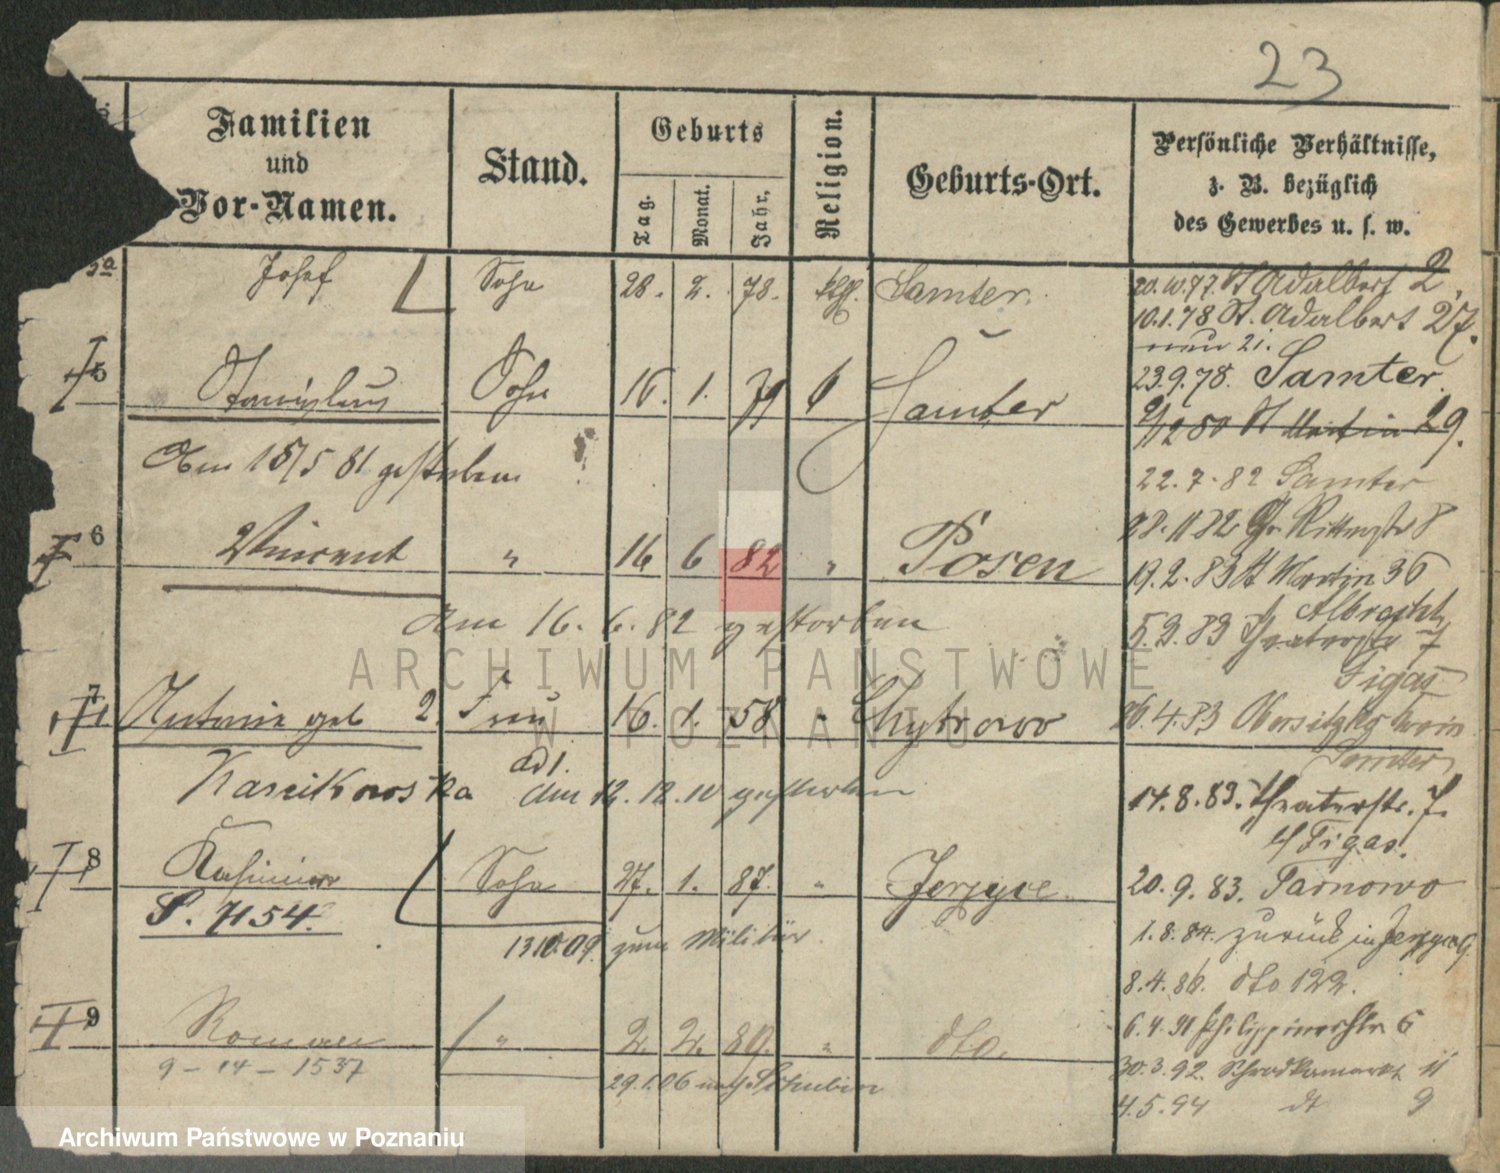 23
Familien
und
Vor-Namen.
Stand.
Geburts
Tag.
Monat.
Jahr.
Religion.
Geburts-Ort.
Persönliche Verhältnisse,
z. B. bezüglich
des Gewerbes u. s. w.
Josef Sohn 28. 2. 78. Samter.
20.10.77. St Adalbert 2.
10.1.78 St. Adalbert 27.
nun 21.
5 Stanislaus Sohn 16. 1. 79 Samter
23.9.78. Samter.
St Martin 29.
Am 18/5 81 gestorben
22.7.82 Samter
6 Vincent " 16 6 82 " Posen
28.11 82 Gr Ritterstr 8
19.2.83 St Martin 36
am 16. 6. 82 gestorben
Albrecht
5.3.83 Theaterstr 7
Figas
7 Antonie geb 2. Frau 16. 1. 58 " Chytrowo
26.4.83
Samter
ad 1.
am 12.12.10 gestorben
14.8.83. Theaterstr. 7.
b/ Figas.
8 Kasimir Sohn 27. 1. 87. " Jerzyce.
S. 7154.
20.9.83. Tarnowo
13.10.09. zum Militär.
1.8.84. zurück in Jerzyce
8.4.86. dto 122.
9 Roman " 2. 2. 89. " dto.
6.4.91 Philippinerstr 6
9 - 14 - 1537
29.1.06 nach
30.3.92. Schrodkamarkt 11
4.5.94 dt 9
ARCHIWUM PAŃSTWOWE
W POZNANIU
Archiwum Państwowe w Poznaniu